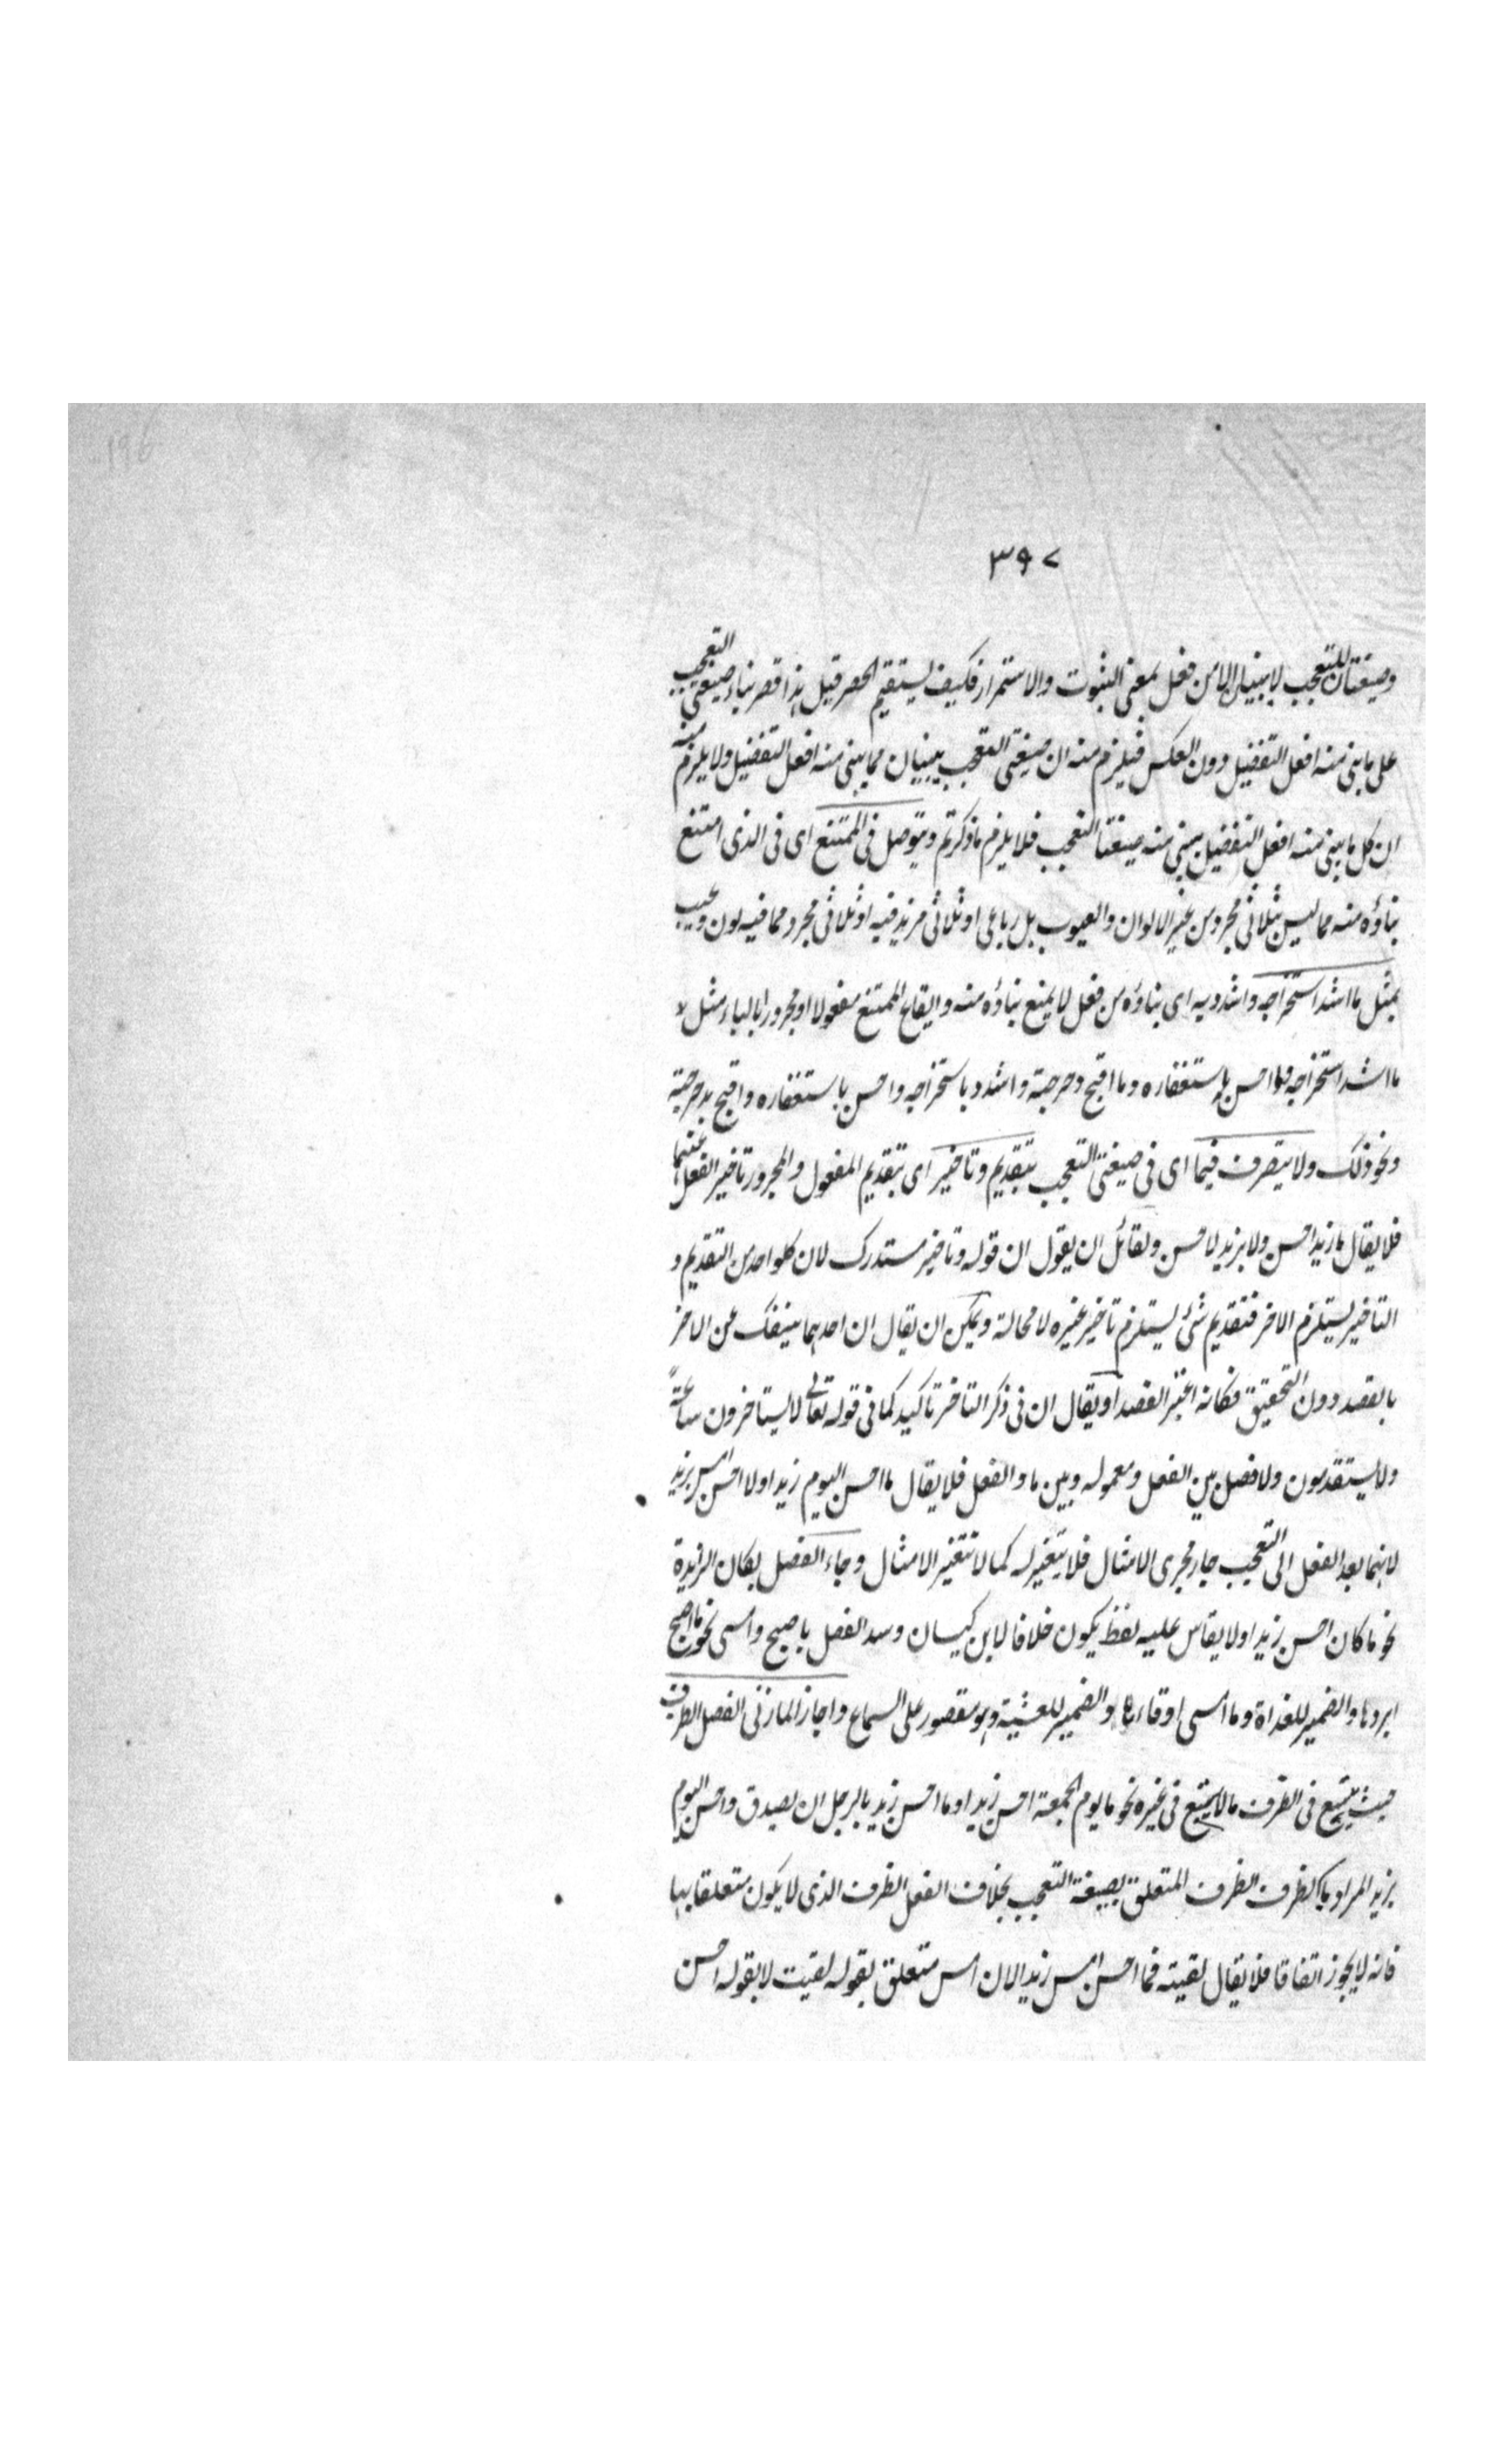 ٣٩٧
وصيغتان للتعجب لا يبنيان الا من فعل بمعنى الثبوت والاستمرار فكيف يستقيم الحصر قيل هذا قصر بناء صيغتي التعجب
على ما يبنى منه افعل التفضيل دون العكس فيلزم منه ان صيغتي التعجب يبنيان مما يبنى منه افعل التفضيل ولا يلزم منه
ان كل ما يبنى منه افعل التفضيل يبنى منه صيغتا التعجب فلا يلزم ما ذكرتم ويتوصل في الممتنع اى فى الذى امتنع
بناؤه منه مما ليس بثلاثى مجرد من غير الالوان والعيوب بل رباعى او ثلاثى مزيد فيه او ثلاثى مجرد مما فيه لون وعيب
بمثل ما اشد استخراجه واشدد به اى بناؤه من فعل لا يمنع بناؤه منه وايقاع الممتنع مفعولا او مجرورا بالباء مثل
ما اشد استخراجه وما احسن استغفاره وما اقبح دحرجته واشدد باستخراجه واحسن باستغفاره واقبح بدحرجته
ونحو ذلك ولا يتصرف فيهما اى فى صيغتى التعجب بتقديم وتاخير اى بتقديم المفعول والمجرور تاخير الفعل عنهما
فلا يقال ما زيدا احسن ولا بزيد احسن ولقائل ان يقول ان قوله وتاخير مستدرك لان كلواحد من التقديم و
التاخير يستلزم الاخر فتقديم شئ يستلزم تاخير غيره لا محالة ويمكن ان يقال ان احدهما ينفك عن الاخر
بالقصد دون التحقيق فكانه اعتبر القصد او يقال ان فى ذكر التاخر تاكيد كما فى قوله تعالى لا يستاخرون ساعةً
ولا يستقدمون ولا فصل بين الفعل ومعموله وبين ما والفعل فلا يقال ما احسن اليوم زيدا ولا احسن امس بزيد
لانهما بعد الفعل الى التعجب جار مجرى الامثال فلا يتغير له كما لا تتغير الامثال وجاء الفصل بكان الزايدة
نحو ما كان احسن زيدا ولا يقاس عليه لفظ يكون خلافا لابن كيسان وسد الفصل باصبح وامسى نحو ما اصبح
ابردها والضمير للغداة وما امسى ادفاءها والضمير للعشية وهو مقصور على السماع واجاز المازنى الفصل بالظرف
حيث يتسع فى الظرف ما لا يتسع فى غيره نحو ما يوم الجمعة احسن زيدا وما احسن زيد بالرجل ان يصدق واحسن اليوم
بزيد المراد بالظرف الظرف المتعلق بصيغة التعجب بخلاف الفعل الظرف الذى لا يكون متعلقا بها
فانه لا يجوز اتفاقا فلا يقال لقيته فما احسن امس زيدا لان امس متعلق بقوله لقيت لا بقوله احسن